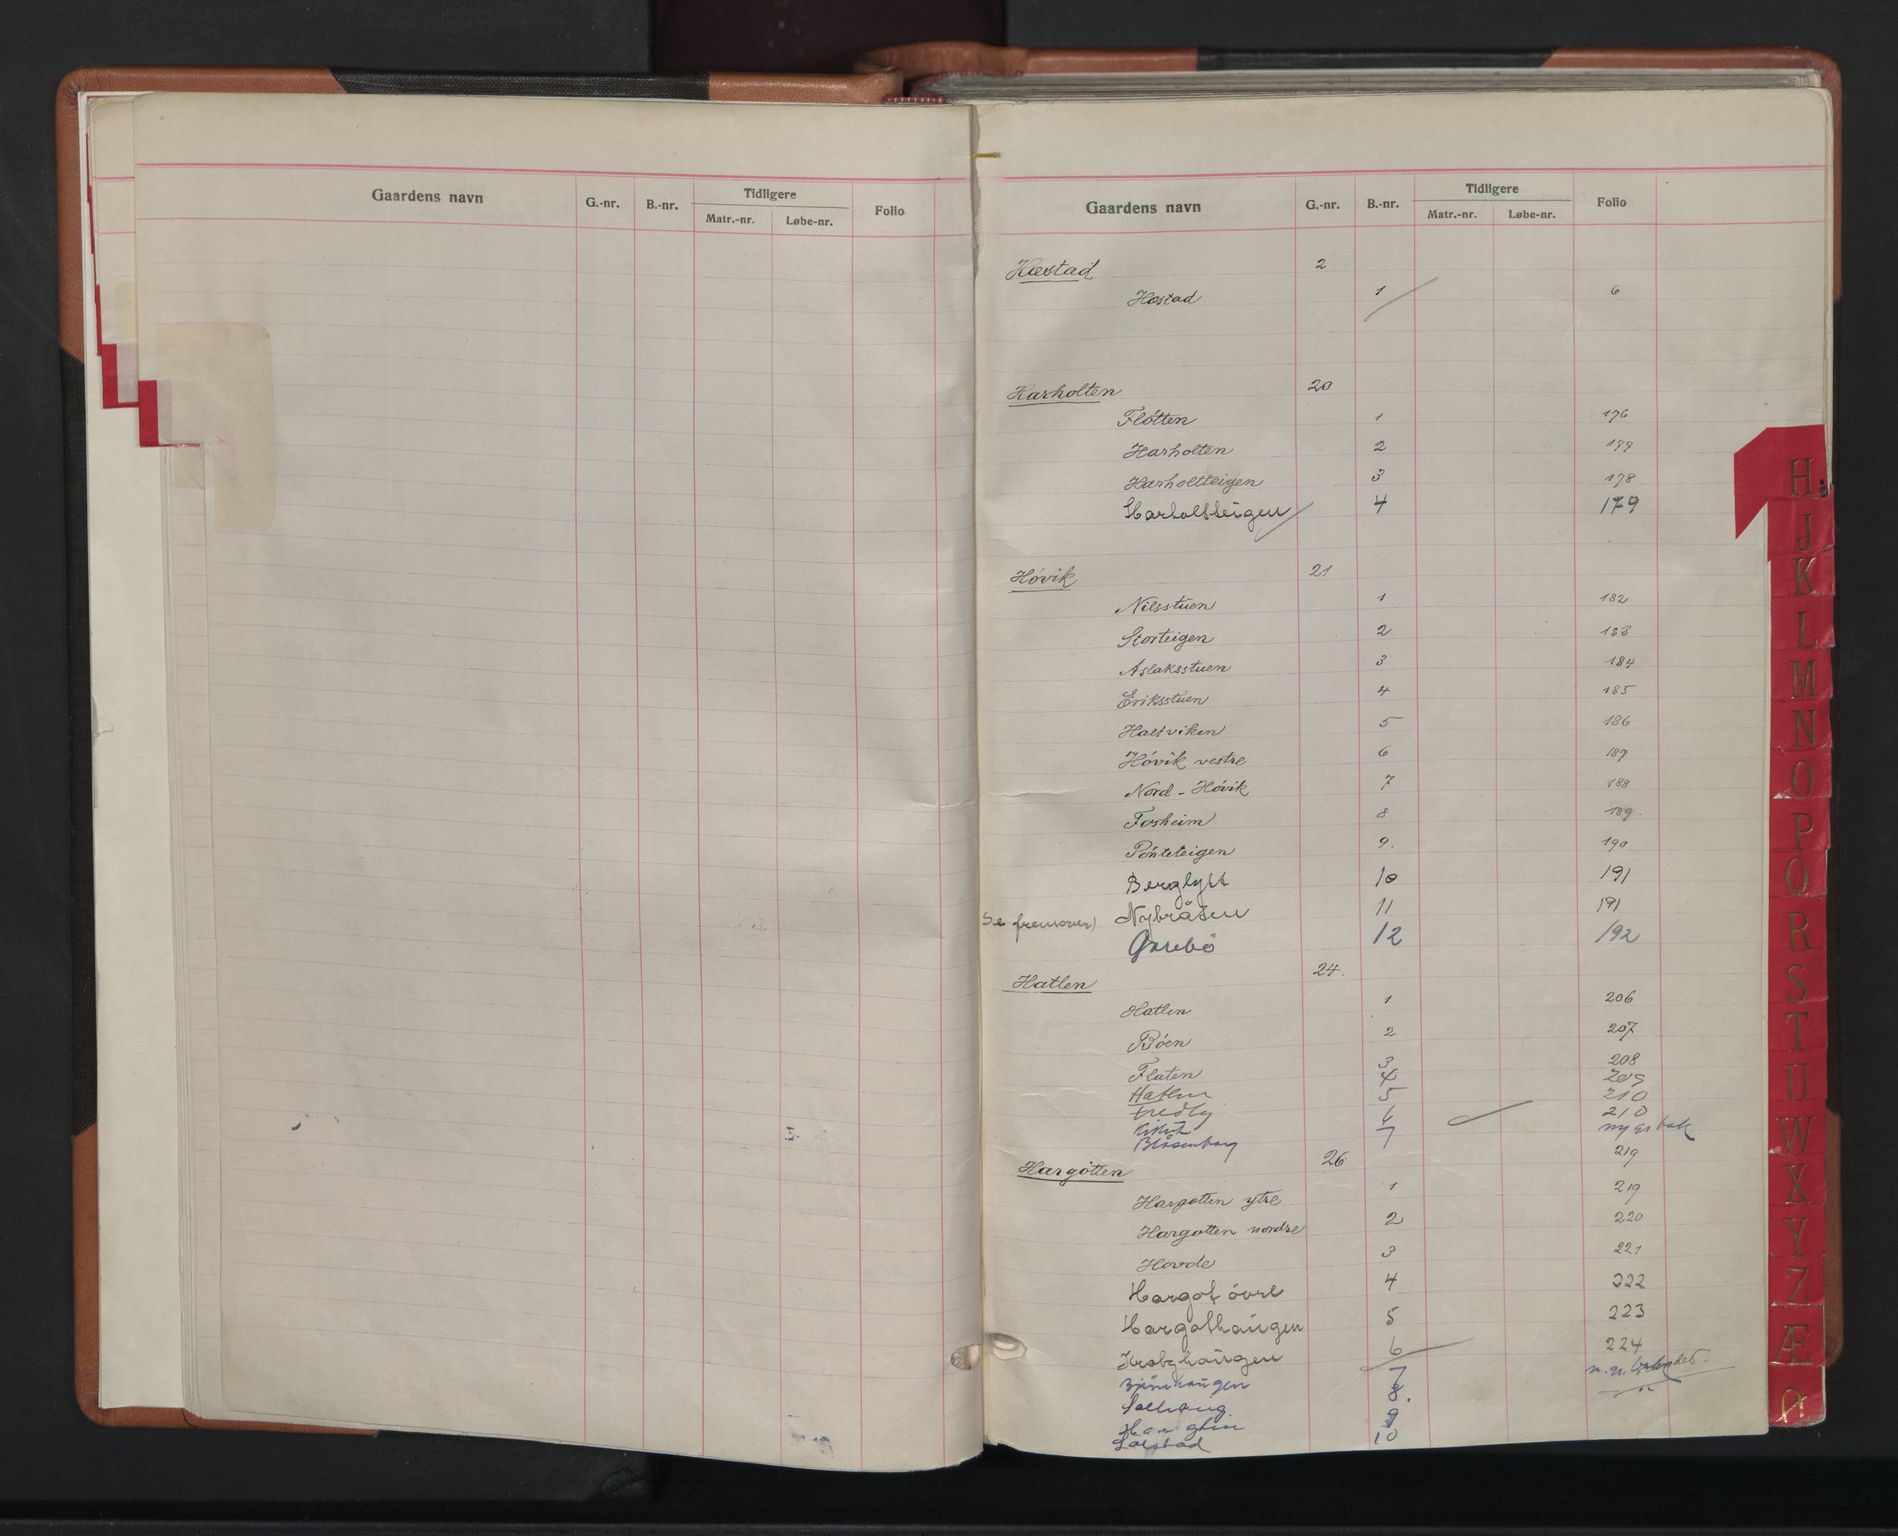 Gaardens navn G.-nr. B.-nr. Tidligere Matr.-nr. Løbe-nr. Folio
Gaardens navn G.-nr. B.-nr. Tidligere Matr.-nr. Løbe-nr. Folio
Hæstad 2
Hæstad 1 6
Harholten 20
Flôtten 1 176
Harholten 2 177
Harholtteigen 3 178
Harholtteigen 4 179
Hóvik 21
Nilsstuen 1 182
Storteigen 2 183
Aslaksstuen 3 184
Eriksstuen 4 185
Halsviken 5 186
Hóvik vestre 6 187
Nord-Hóvik 7 188
Fosheim 8 189.
Pónteteigen 9. 190
Berglytt 10 191
Se fremover) Nybråten 11 191
Grrebö 12 192
Hatlen 24.
Hatlen 1 206
Bóen 2 207
Flaten 3 208
Hatlen 4 209
Fredly 5 210
6 210
Blåsenborg 7 ny gr bok
Hargótten 26 219
Hargotten ytre 1 219
Hargotten nordre 2 220
Hovde 3 221
Hargot óvre 4 222
Hargothaugen 5 223
Kråbyhaugen 6 224
Bjørnhaugen 7
Solhaug 8.
9
Solstad 10
H
J
K
L
M
N
O
P
Q
R
S
T
U
W
X
Y
Z
Æ